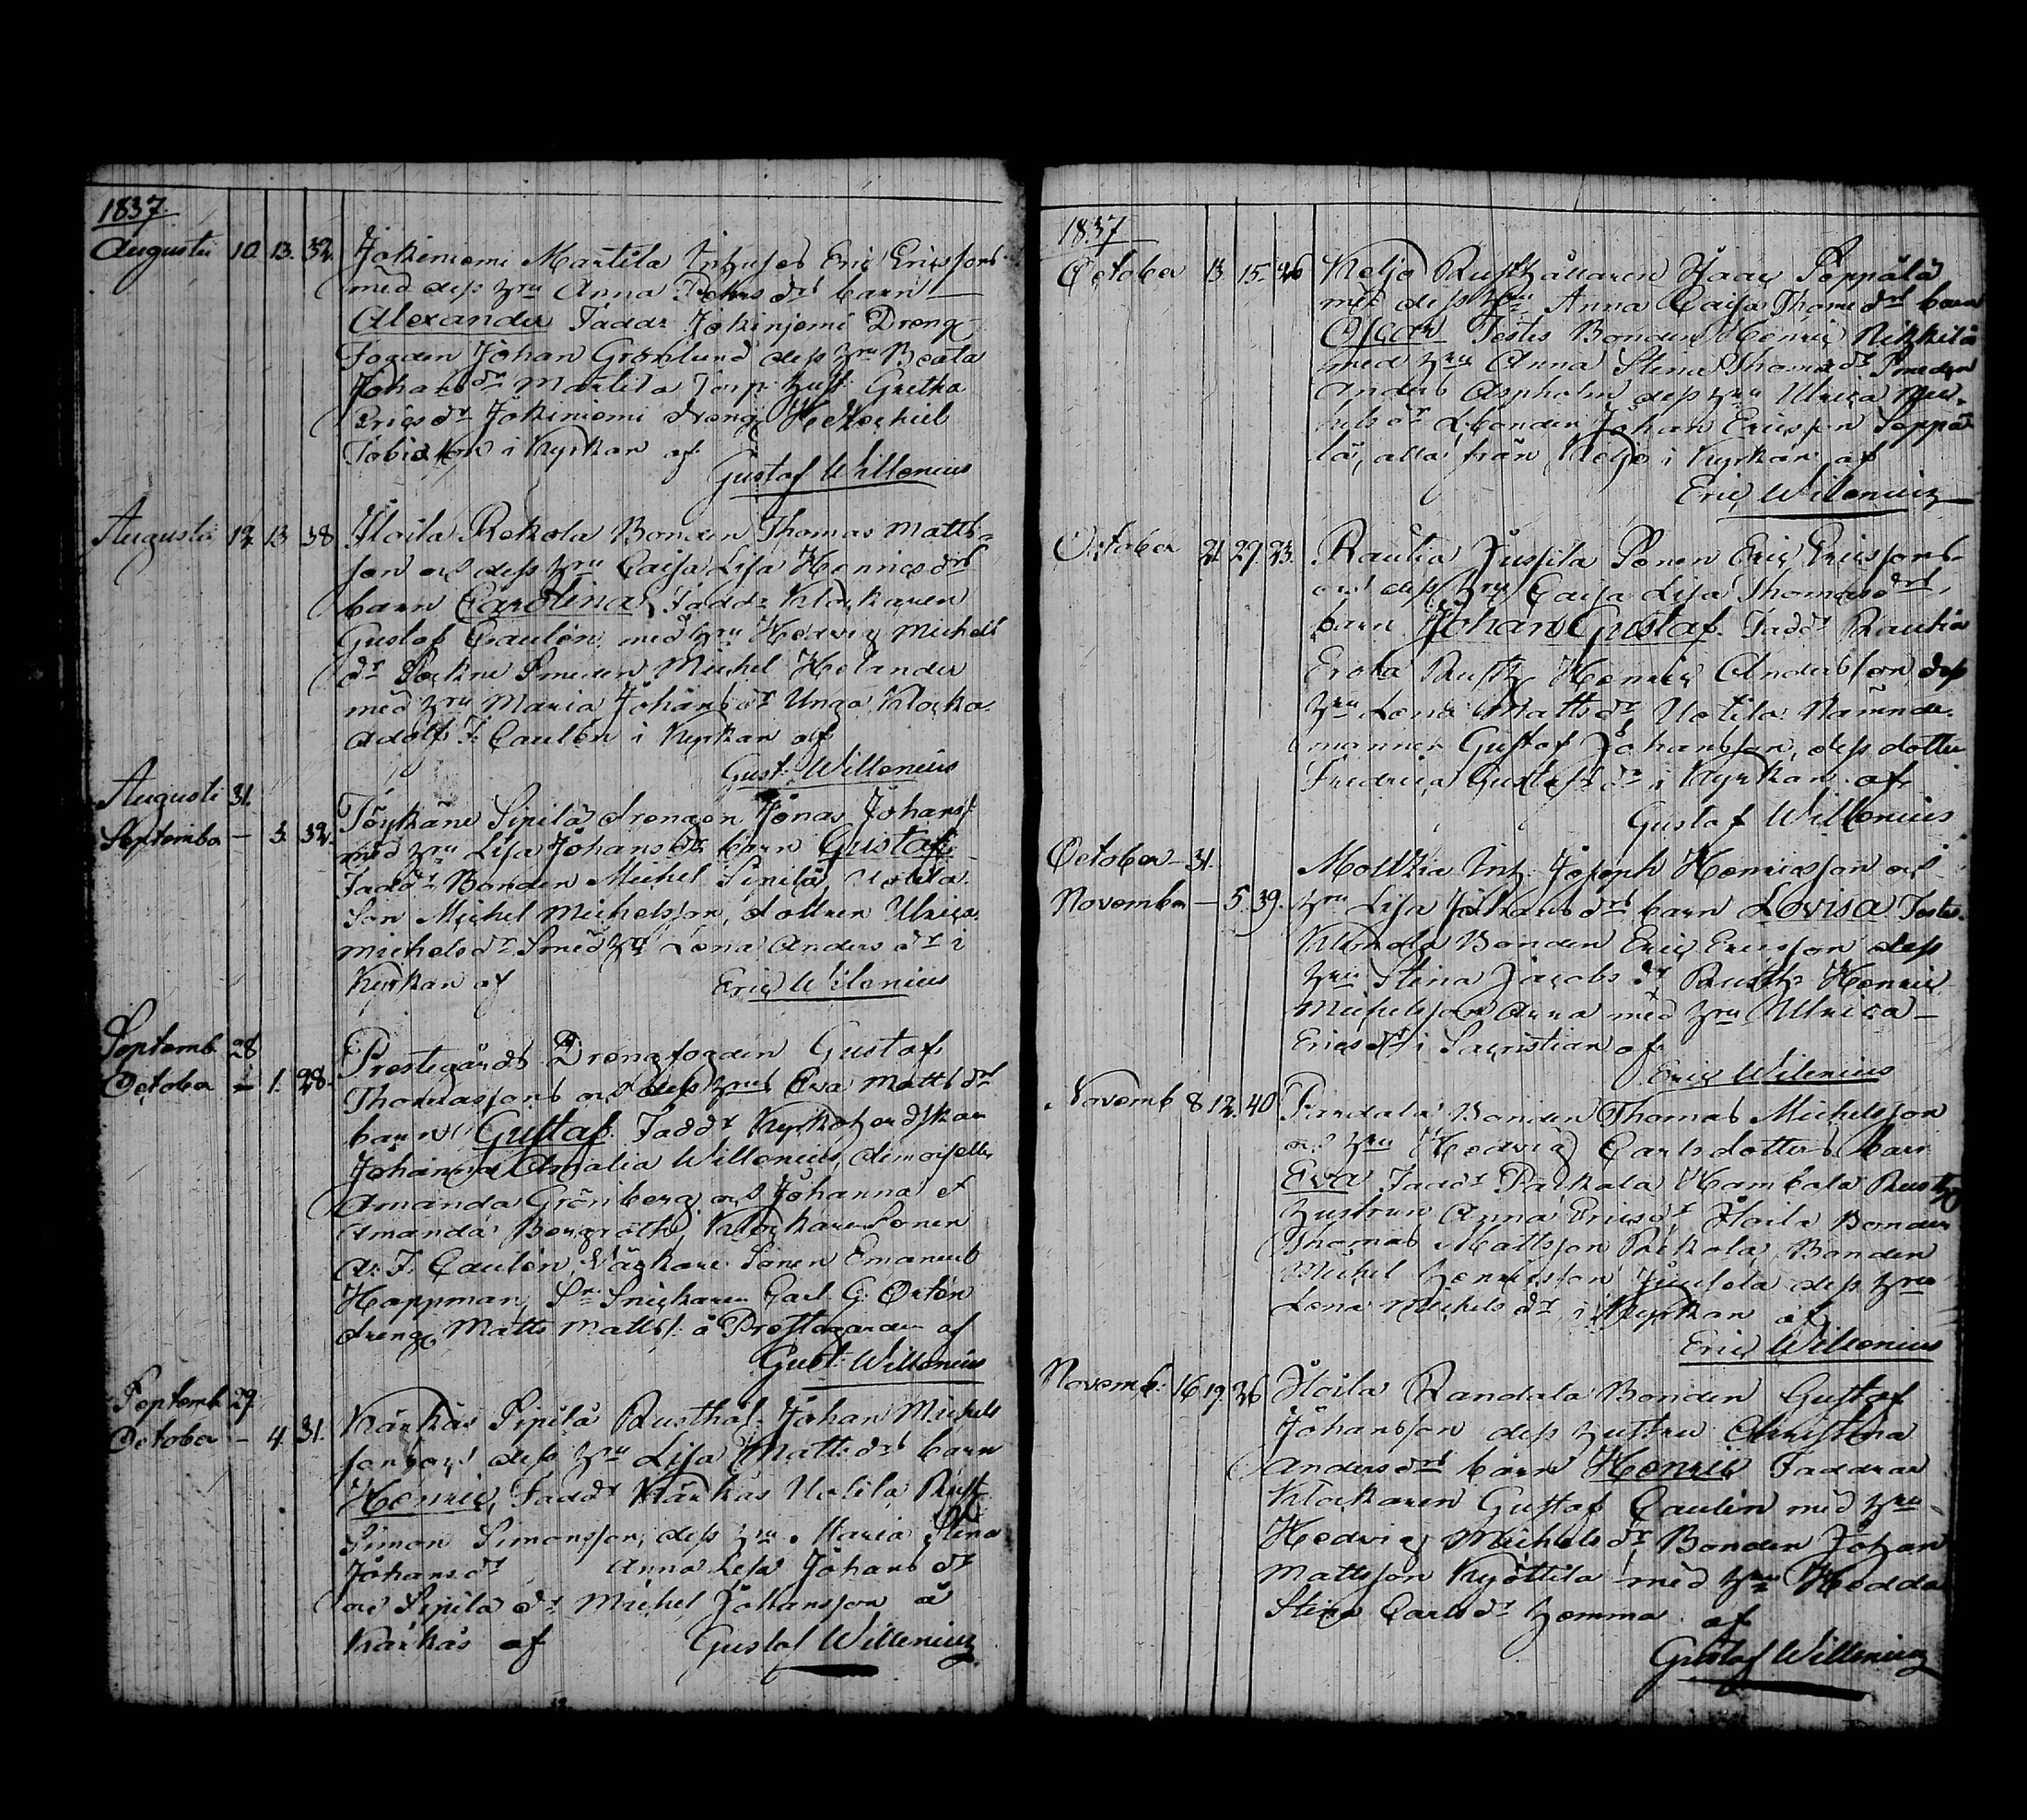 1837.
Augusti 10. 13. 32. Jokiniemi Martila Inhyses Eric Ericssons
med dess hru Anna Pehrs drs barn
Alexander Fadd: Jokiniemi Dreng
fogden Johan Grönlund dess hru Beata
Johans dr Martila Torp: hust: Gretha
Erics dr Jokiniemi dreng
Tobiasson i Kyrkan af
Gustaf Willenius
Augusti 12 13 38 Iloila Rekola Bonden Thomas Matts-
son och dess hru Caisa Lisa Henrics drs
barn Carolina, Fadd: Klockaren
Gustaf Caulén, med hru Hedvig Michels
dr Sockne Smeden Michel Helander
med hru Maria Johans dr Unga Klocka:
Adolf F. Caulén i Kyrkan af
Gust: Willenius
Augusti 31.
September — 3. 32. Töykäne Sipilä drengen Jonas Johans:
med hru Lisa Johans drs barn Gustaf.
Fadd:r Bonden Michel Sipilä,
Son Michel Michelsson, dottren Ulrica
Michels dr Smed hru Lena Anders dr i
Kyrkan af Eric Wilenius
Septemb 28
October — 1. 28. Prestegårds Drengfogden Gustaf
Thomassons och dess hrus Eva Matts drs
barn Gustaf. Fadd:r Kyrkoherdskan
Johanna Amalia Willenius, dimoiselle
Amanda Grönberg och Johanna &
Amanda Bergroth, Klockare Sonen
A. F. Caulén, Sonen Emanuel
Hoppman, Sn: Snickaren Carl G. Ortén
dreng Matts Matts: å Prestagården af
Gust: Willenius
Septemb 29.
October — 4. 31. Kärkäs Sipilä Rusthål: Johan Michels
sons och dess hru Lisa Matts drs barn
Henric, Fadd:r Kärkäs Uotila Rust
Simon Simonsson, dess hru Maria Stina
Johans dr Anna Lisa Johans dr
och Sipilä dr Michel Johansson å
Kärkäs af Gustaf Willenius
1837
October 13 15. 26 Keljo Rusthållaren Isaac Seppälä
med dess hru Anna Caisa Thome drs barn
Oscar Testes Bonden Henric Nikkilä
med hru Anna Stina Thoms dr Smeden
Anders Aspholm dess hru Ulrica
dr Bonden Johan Ericsson Seppä-
lä, alla från Keljo i Kyrkan af
Eric Wilenius
October 21 29. 23. Rautia Jussila Sonen Eric Ericssons
och dess hru Caisa Lisa Thomas drs,
barn Johan Gustaf. Fadd:r Rautia
Erola Rusth Henric Andersson dess
hru Lena Matts dr, Uotila Nämnde-
mannen Gustaf Johansson, dess dotter
Fredrica Gustafs dr i Kyrkan af
Gustaf Willenius
October — 31.
November — 5. 39. Inh. Joseph Henricsson och
hru Lisa Johans drs barn Lovisa. Testes
Klemola Bonden Eric Ericsson dess
hru Stina Jacobs dr Rusth: Henric
Michelsson med hru Ulrica
Erics dr i Sacristian af
Eric Wilenius
Novemb 8 12. 40 Bonden Thomas Michelsson
och hru Hedvig Carlsdotters barn
Eva Fadd:r Parkala Rust
hustrun Anna Erics dr, Iloila Bonden
Thomas Mattsson Rekola, Bonden
Michel Henricsson dess hru
Lena Michels dr, i Kyrkan af
Eric Willenius
Novemb: 16 19. 26 Iloila Randala Bonden Gustaf
Johansson dess hustru Christina
Anders drs barn Henric Faddrar
Klockaren Gustaf Caulén med hru
Hedvig Michels dr Bonden Johan
Mattsson Kyöttilä med hru Hedda
Stina Carls dr hemma af
Gustaf Willenius